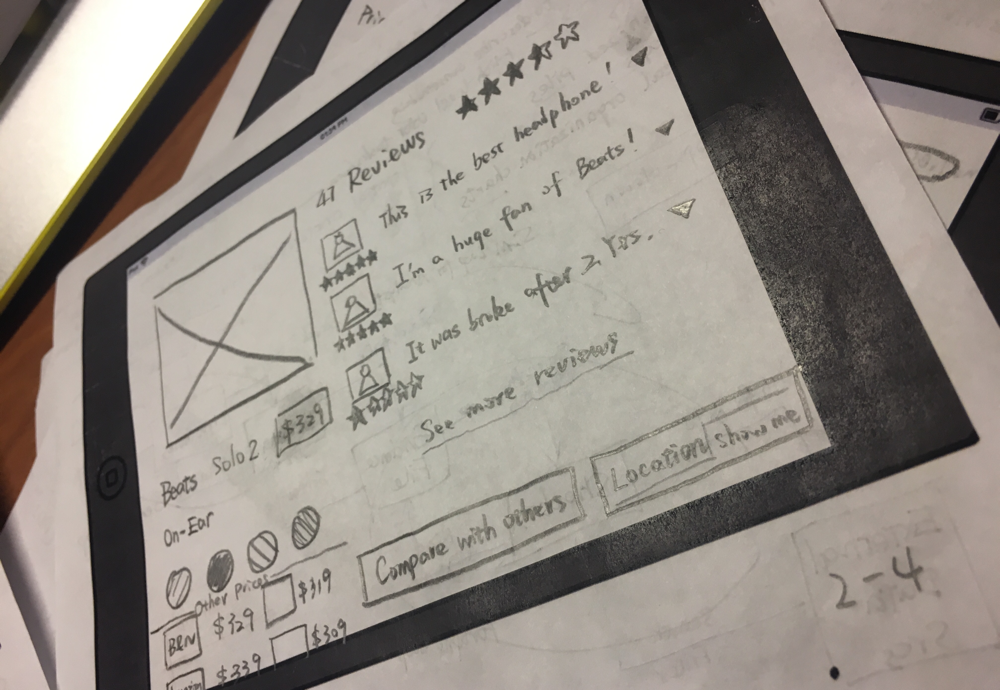 41 Reviews
This is the best headphone!
I'm a huge fan of Beats!
It was broke after 2 Yrs.
See more reviews
$329
Beats Solo2
On-Ear
Other Prices
B&N $329 $319
$339 $309
Compare with others
Location show me
2-4